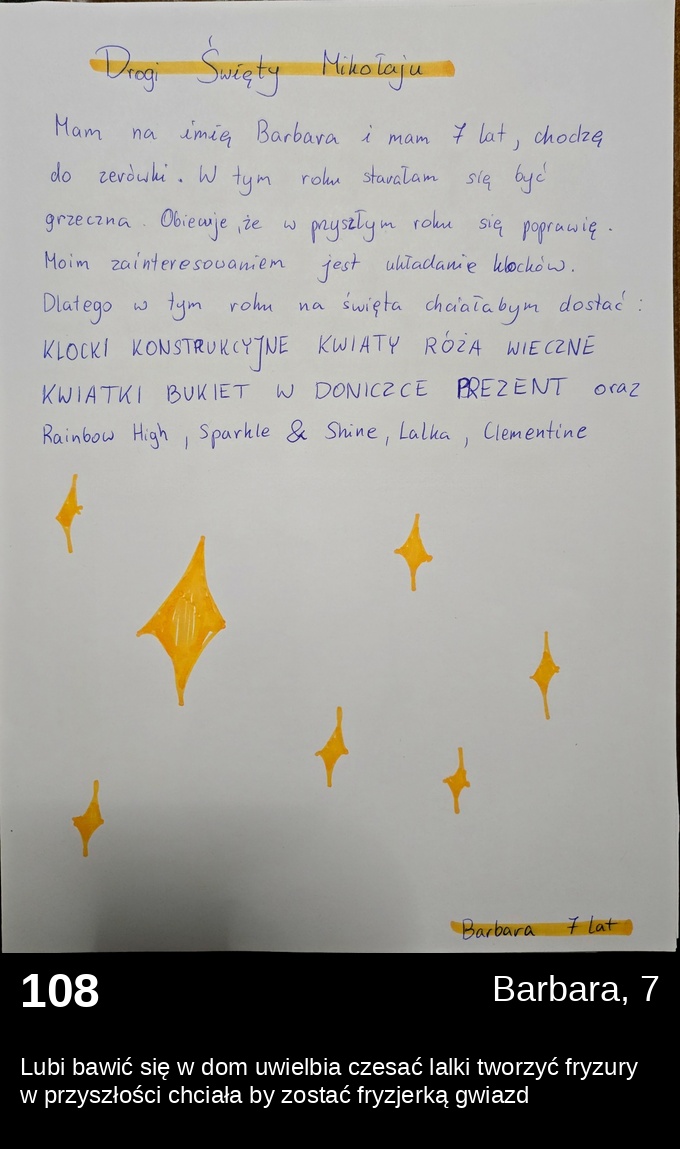 Drogi Święty Mikołaju
Mam na imię Barbara i mam 7 lat, chodzę
do zerówki. W tym roku starałam się być
grzeczna. Obiecuje, że w przyszłym roku się poprawię.
Moim zainteresowaniem jest układanie klocków.
Dlatego w tym roku na święta chciałabym dostać:
KLOCKI KONSTRUKCYJNE KWIATY RÓŻA WIECZNE
KWIATKI BUKIET W DONICZCE PREZENT oraz
Rainbow High, Sparkle & Shine, Lalka, Clementine
Barbara 7 lat
108
Barbara, 7
Lubi bawić się w dom uwielbia czesać lalki tworzyć fryzury
w przyszłości chciała by zostać fryzjerką gwiazd